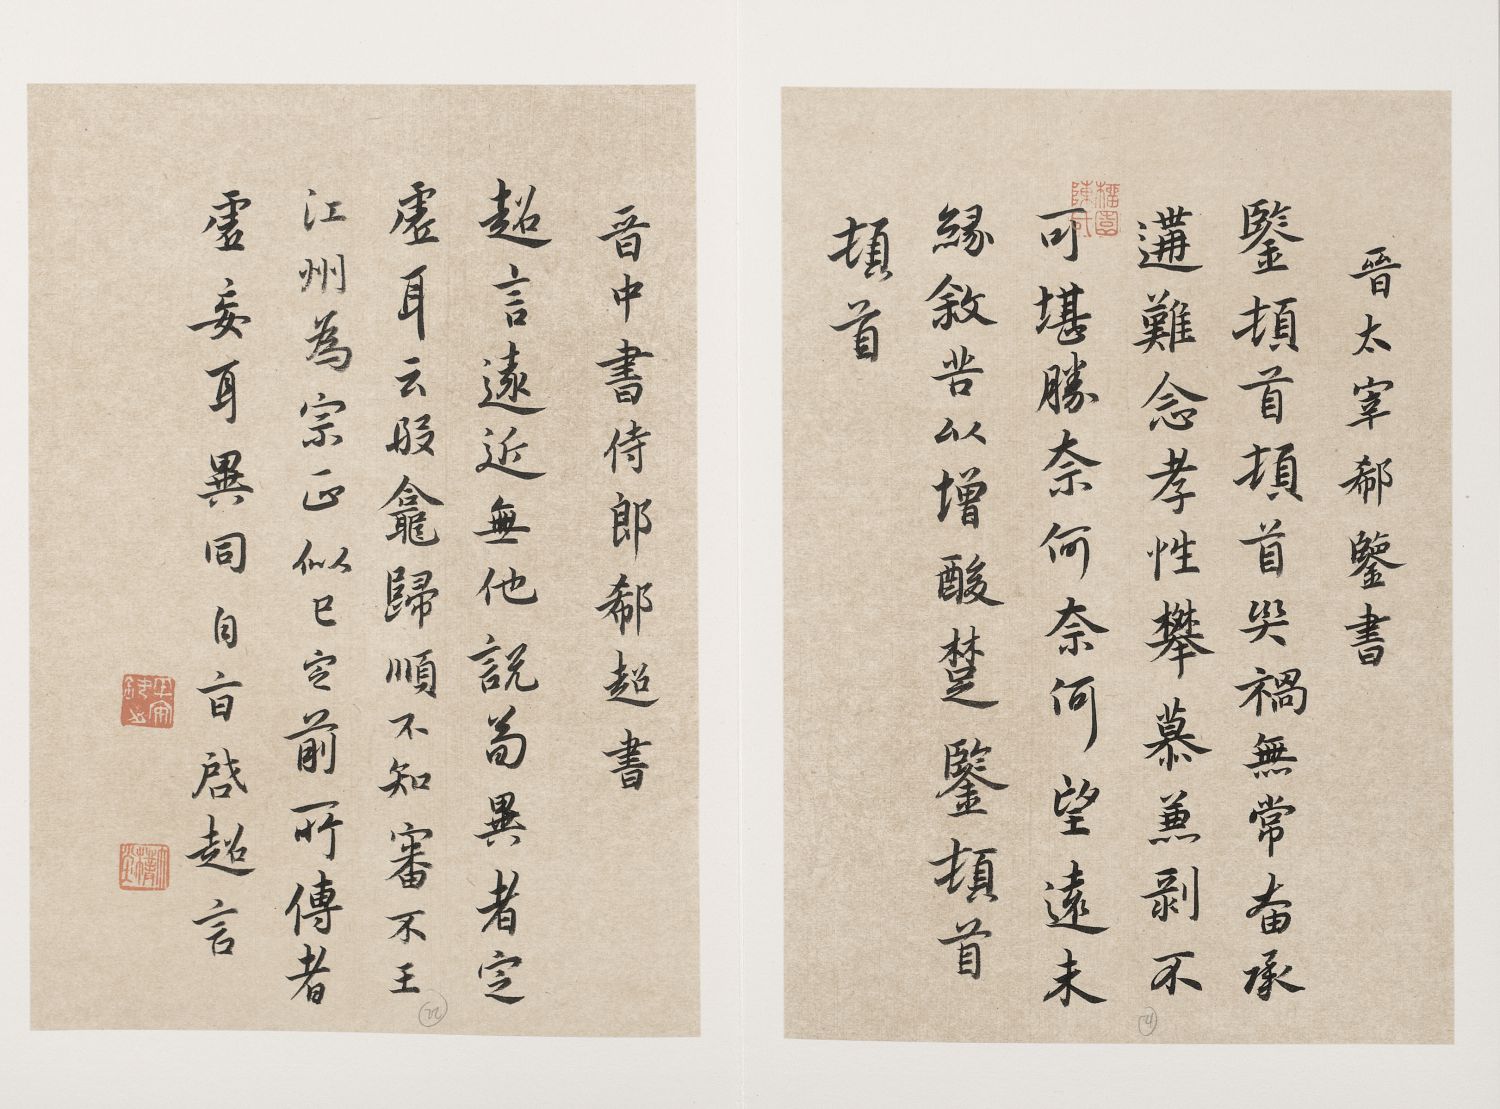 晉太宰郗鑒書
鑒頓首頓首災禍無常奄承
遘難念孝性攀慕兼剝不
可堪勝奈何奈何望遠未
緣敘苦以增酸楚鑒頓首
頓首
晉中書侍郎郗超書
超言遠近無他說萏異者定
虛耳云殷龕歸順不知審不王
江州為宗正似已定前所傳者
虛妄耳異同自百啓超言
22